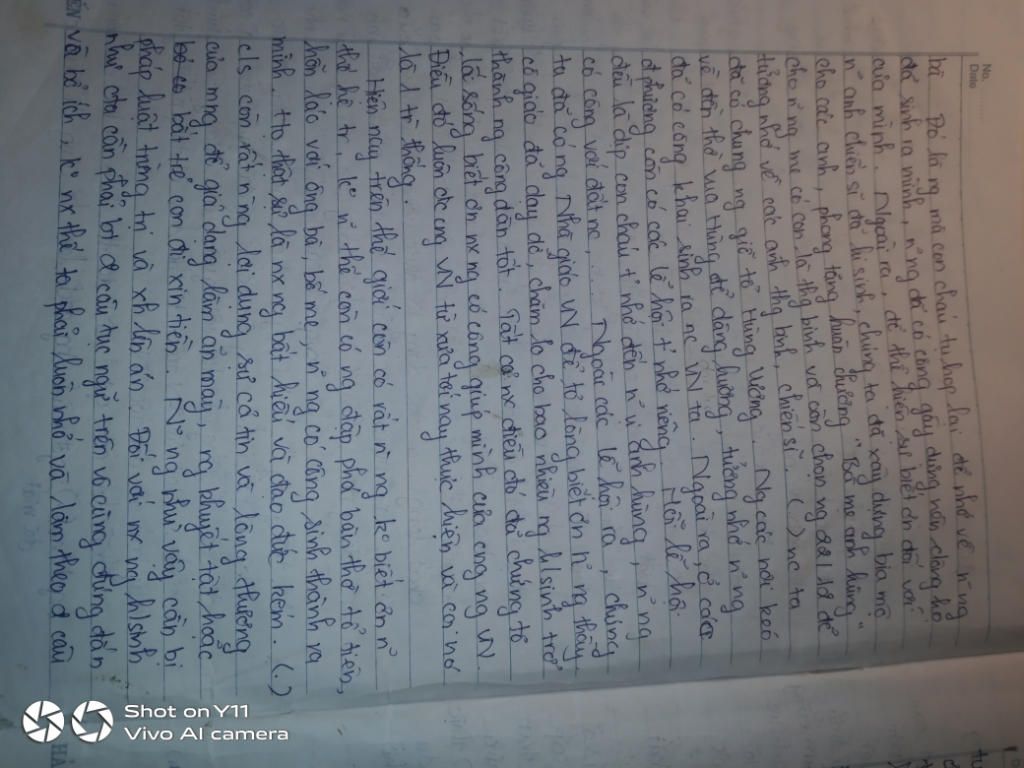 No.
Date
bà. Đó là ng mà con cháu tụ họp lại để nhớ về n~ng
đã sinh ra mình, n~ng đã có công gây dựng nên dòng họ
của mình. Ngoài ra, để thể hiện sự biết ơn đối với
n~ anh chiến sĩ đã hi sinh, chúng ta đã xây dựng bia mộ
cho các anh, phong tặng huân chương "Bà mẹ anh hùng"
cho n~ng mẹ có con là thg binh và còn chọn ng 22/12 để
tưởng nhớ về các anh thg binh, chiến sĩ. (.) nc ta
đã có chung ng giỗ tổ Hùng Vương. Ng các nơi kéo
về đền thờ vua Hùng để dâng hương, tưởng nhớ n~ng
đã có công khai sinh ra nc VN ta. Ngoài ra, ở các
địa phương còn có các lễ hội t' nhớ riêng. Mỗi lễ hội
đều là dịp con cháu t' nhớ đến n~ vị anh hùng, n~ng
có công với đất nc,... Ngoài các lễ hội ra, chúng
ta đã có ng Nhà giáo VN để tỏ lòng biết ơn n~ng thầy
cô giáo đã dạy dỗ, chăm lo cho bao nhiêu ng h/sinh trở
thành ng công dân tốt. Tất cả n~ điều đó đã chứng tỏ
lối sống biết ơn n~ ng có công giúp mình của cng ng VN.
Điều đó luôn đc ng VN từ xưa tới nay thực hiện và coi nó
là 1 tr` thống.
Hiện nay trên thế giới còn có rất n` ng ko biết ơn n~
thế hệ tr', ko n~ thế còn có ng đập phá bàn thờ tổ tiên,
hỗn láo với ông bà, bố mẹ, n~ng có công sinh thành ra
mình. Họ thật sự là n~ ng bất hiếu và đạo đức kém. (.)
c/s còn rất n` ng lợi dụng sự cả tin và lòng thương
của mng để giả dạng làm ăn mày, ng khuyết tật hoặc
bắt trẻ con đi xin tiền. N~ng như vậy cần bị
pháp luật trừng trị và xh lên án. Đối với n~ ng h/sinh
như cta cần phải bt đ câu tục ngữ trên vô cùng đúng đắn
và bổ ích, ko n~ thế ta phải luôn nhớ và làm theo đ câu
Shot on Y11
Vivo AI camera